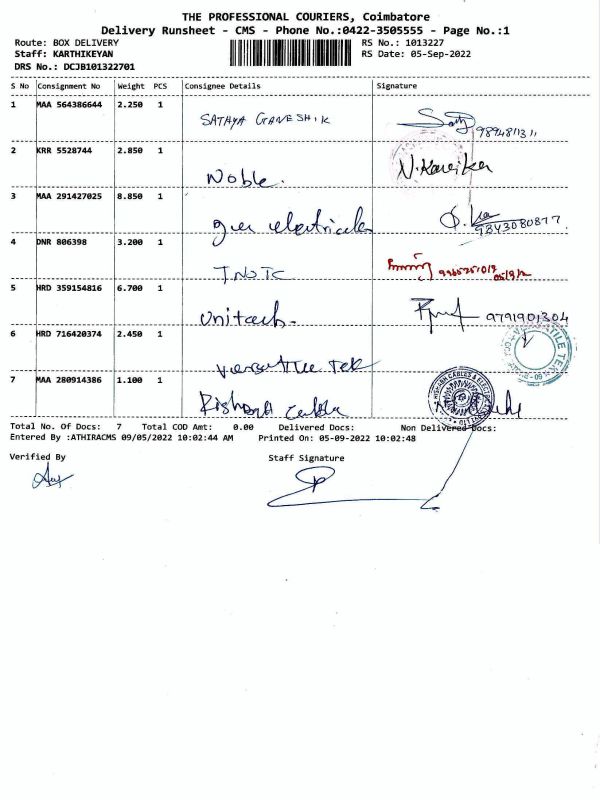 THE PROFESSIONAL COURIERS, Coimbatore
Delivery Runsheet - CMS - Phone No.:0422-3505555 - Page No.:1
Route: BOX DELIVERY RS No.: 1013227
Staff: KARTHIKEYAN RS Date: 05-Sep-2022
DRS No.: DCJB101322701
S No Consignment No Weight PCS Consignee Details Signature
1 MAA 564386644 2.250 1 SATHYA GANESH K
2 KRR 5528744 2.850 1 Noble. N.Kavika
3 MAA 291427025 8.850 1 electricals 9843080877
4 DNR 806398 3.200 1 TNSTC
5 HRD 359154816 6.700 1 Unitech- 9791901304
6 HRD 716420374 2.450 1 Versatile Tek
7 MAA 280914386 1.100 1 Rishabh Cables
Total No. Of Docs: 7 Total COD Amt: 0.00 Delivered Docs: Non Delivered Docs:
Entered By :ATHIRACMS 09/05/2022 10:02:44 AM Printed On: 05-09-2022 10:02:48
Verified By Staff Signature